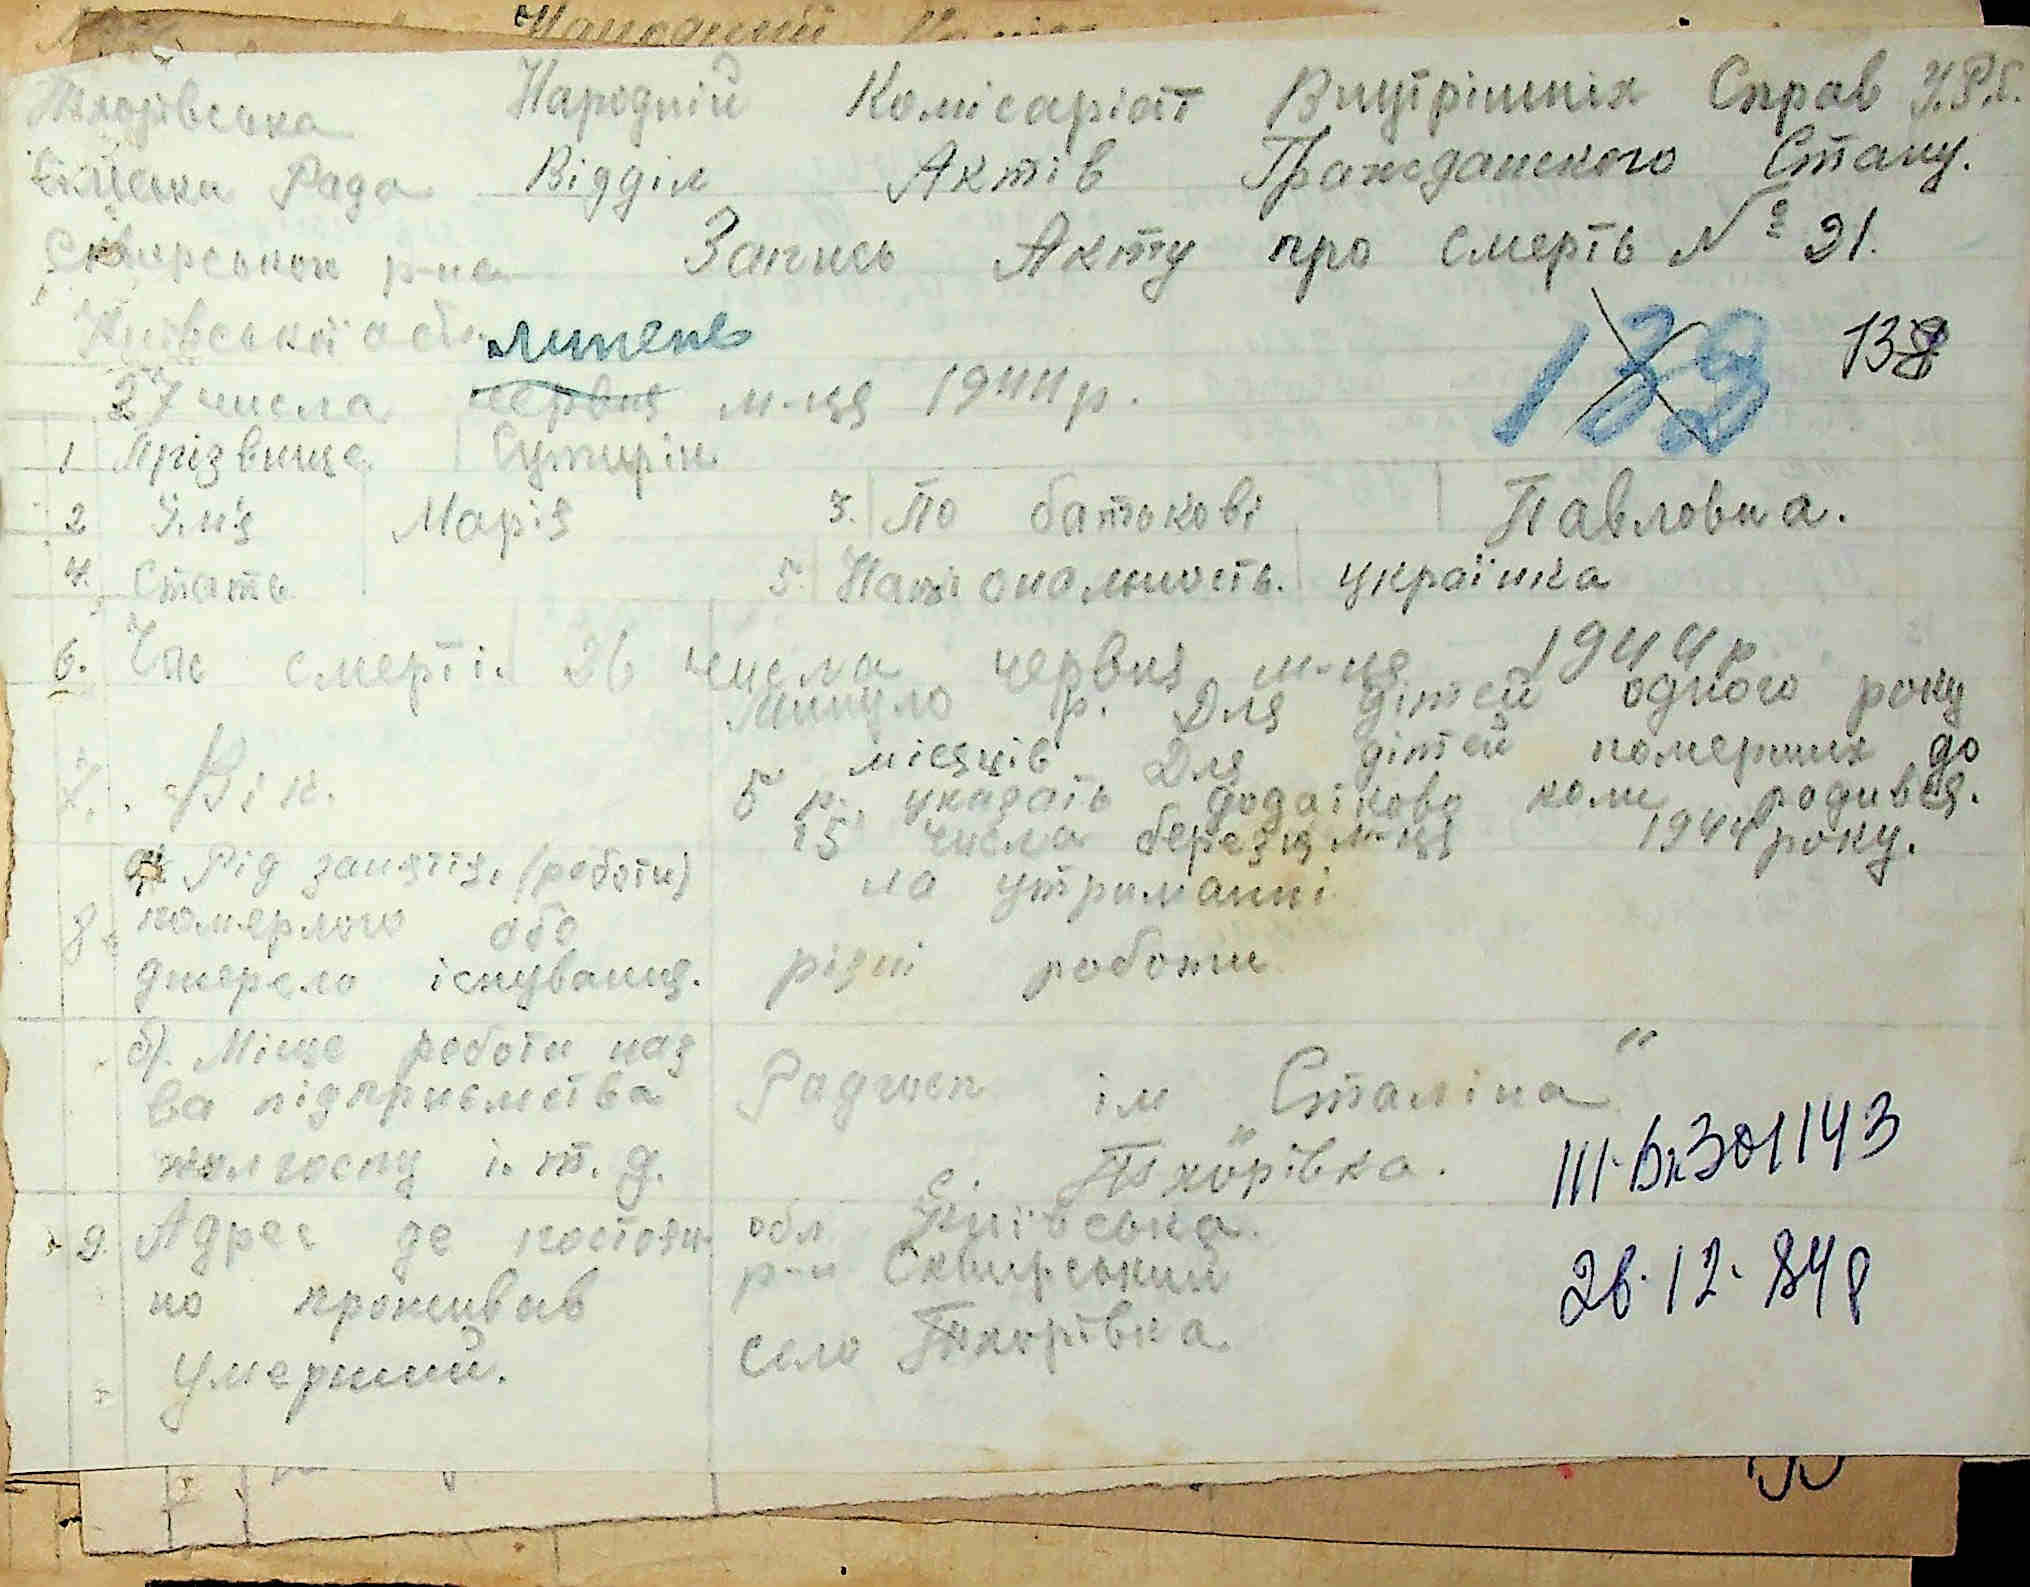 Тхорівська Народній Комісаріат Внутрішніх Справ У.Р.С.
Сільська Рада Відділ Актів Гражданского Стану.
Сквирського р-на Запись Акту про смерть № 21.
Київської обл. липень
139 138
27 числа червня м-ця 1944 р.
1 Прізвище
2 Ім'я Марія 3. По батькові Павловна.
4. Стать 5. Національность. українка
6. Час смерті. 26 числа червня м-ця 1944 р
Минуло р. Для дітей одного року
місяців Для дітей померших до
7. Вік. 5 р. указать додатково коли родився.
15 числа березня м-ця 1944 року.
а) Рід заняття. (роботи) на утриманні
8. померлого або
джерело існування. різні роботи
б). Місце роботи наз
ва підприємства Радгосп ім „Сталіна"
колгоспу і. т. д. с. Тхорівка.
III-БК 301143
9. Адрес де постоян обл Київська.
но проживав р-н Сквирський
умерший. село Тхорівка
26.12.84 р